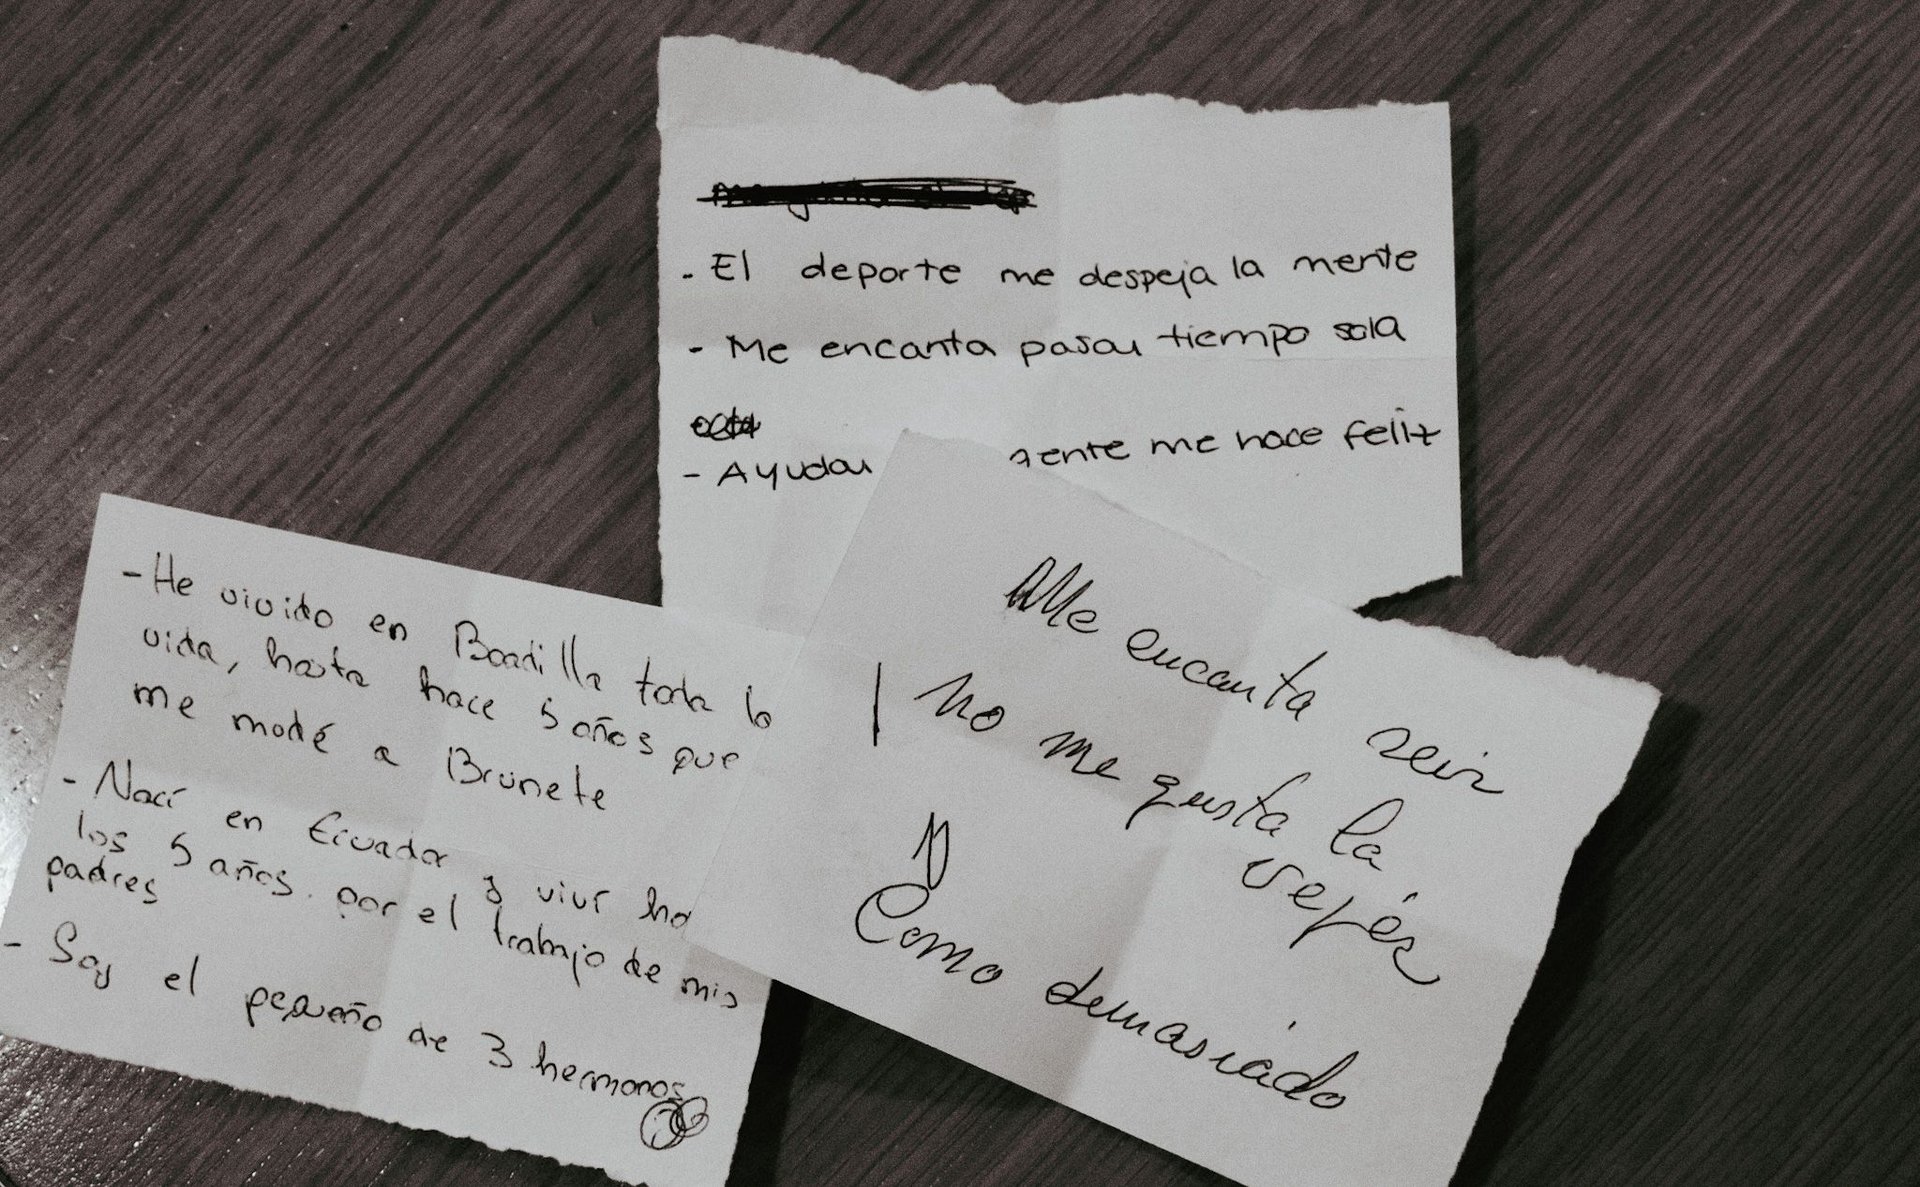 - El deporte me despeja la mente
- Me encanta pasar tiempo sola
- Ayudar gente me hace feliz
- He vivido en Boadilla toda la
vida, hasta hace 5 años que
me modé a Brunete
- Nací en Ecuador y viví ha
los 5 años. por el trabajo de mis
padres
- Soy el pequeño de 3 hermanos
Me encanta reir
1 no me gusta la
vejés
Como demasiado